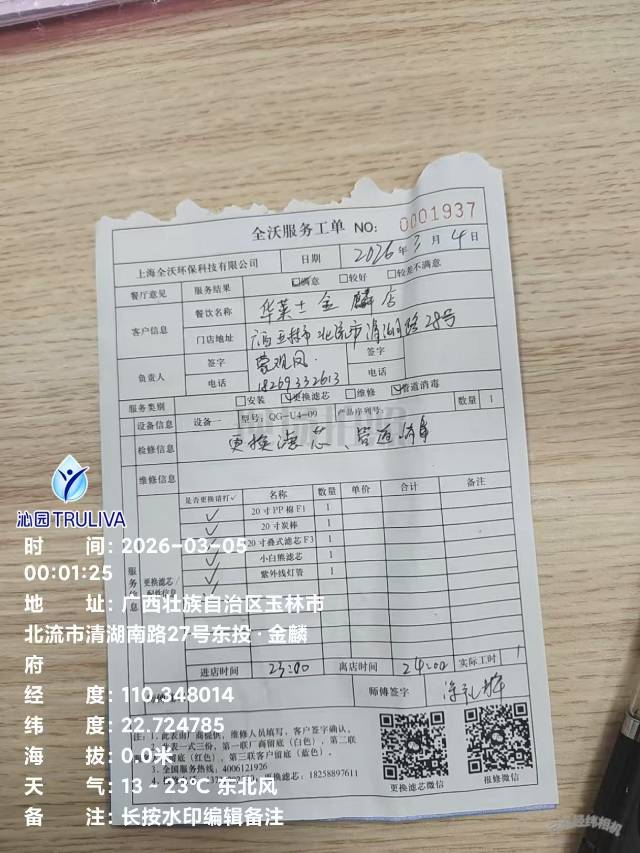 全沃服务工单 NO: 0001937
上海全沃环保科技有限公司 日期 2026年3月4日
餐厅意见 服务结果 ☑满意 □较好 □较差不满意
客户信息 餐饮名称 华莱士金麟店
门店地址 广西玉林市北流市清湖南路28号
负责人 签字 签字
电话 18269332613 电话
服务类别 □安装 ☑更换滤芯 □维修 ☑管道消毒
设备信息 设备一 型号: QG-U4-09 产品序列号: 数量 1
检修信息 更换滤芯、管道消毒
维修信息
服务信息 更换滤芯/配件信息 是否更换请打✓ 名称 数量 单价 合计 备注
✓ 20寸PP棉F1 1
✓ 20寸炭棒 1
✓ 20寸叠式滤芯F3 1
✓ 小白熊滤芯 1
✓ 紫外线灯管 1
进店时间 23:00 离店时间 24:00 实际工时 1
师傅签字
注: 1.此表由厂商提供, 维修人员填写, 客户签字确认。
表一式三份, 第一联厂商留底(白色), 第二联
留底(红色), 第三联客户留底(蓝色)。
3.全国服务热线: 4006121926
更换滤芯: 18258897611
更换滤芯微信 报修微信
沁园TRULIVA
时 间: 2026-03-05
00:01:25
地 址: 广西壮族自治区玉林市
北流市清湖南路27号东投·金麟
府
经 度: 110.348014
纬 度: 22.724785
海 拔: 0.0米
天 气: 13 ~ 23℃ 东北风
备 注: 长按水印编辑备注
经纬相机